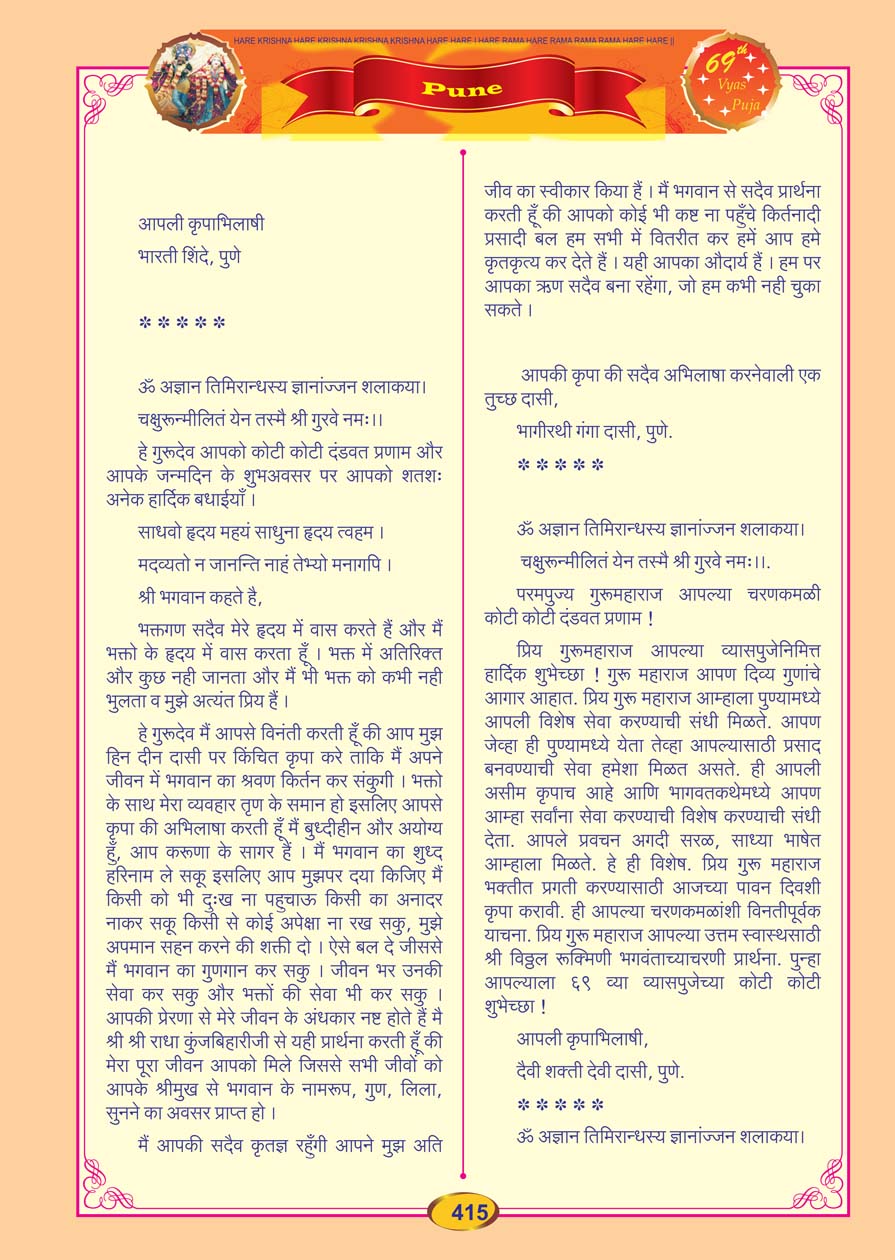 HARE KRISHNA HARE KRISHNA KRISHNA KRISHNA HARE HARE | HARE RAMA HARE RAMA RAMA RAMA HARE HARE ||
Pune
69th
Vyas
Puja
आपली कृपाभिलाषी
भारती शिंदे, पुणे
* * * * *
ॐ अज्ञान तिमिरान्धस्य ज्ञानांज्जन शलाकया।
चक्षुरून्मीलितं येन तस्मै श्री गुरवे नमः।।
हे गुरूदेव आपको कोटी कोटी दंडवत प्रणाम और
आपके जन्मदिन के शुभअवसर पर आपको शतशः
अनेक हार्दिक बधाईयाँ ।
साधवो हृदय महयं साधुना हृदय त्वहम ।
मदव्यतो न जानन्ति नाहं तेभ्यो मनागपि ।
श्री भगवान कहते है,
भक्तगण सदैव मेरे हृदय में वास करते हैं और मैं
भक्तो के हृदय में वास करता हूँ । भक्त में अतिरिक्त
और कुछ नही जानता और मैं भी भक्त को कभी नही
भुलता व मुझे अत्यंत प्रिय हैं ।
हे गुरूदेव मैं आपसे विनंती करती हूँ की आप मुझ
हिन दीन दासी पर किंचित कृपा करे ताकि मैं अपने
जीवन में भगवान का श्रवण किर्तन कर संकुगी । भक्तो
के साथ मेरा व्यवहार तृण के समान हो इसलिए आपसे
कृपा की अभिलाषा करती हूँ मैं बुध्दीहीन और अयोग्य
हूँ, आप करूणा के सागर हैं । मैं भगवान का शुध्द
हरिनाम ले सकू इसलिए आप मुझपर दया किजिए मैं
किसी को भी दुःख ना पहुचाऊ किसी का अनादर
नाकर सकू किसी से कोई अपेक्षा ना रख सकु, मुझे
अपमान सहन करने की शक्ती दो । ऐसे बल दे जीससे
मैं भगवान का गुणगान कर सकु । जीवन भर उनकी
सेवा कर सकु और भक्तों की सेवा भी कर सकु ।
आपकी प्रेरणा से मेरे जीवन के अंधकार नष्ट होते हैं मै
श्री श्री राधा कुंजबिहारीजी से यही प्रार्थना करती हूँ की
मेरा पूरा जीवन आपको मिले जिससे सभी जीवों को
आपके श्रीमुख से भगवान के नामरूप, गुण, लिला,
सुनने का अवसर प्राप्त हो ।
मैं आपकी सदैव कृतज्ञ रहुँगी आपने मुझ अति
जीव का स्वीकार किया हैं । मैं भगवान से सदैव प्रार्थना
करती हूँ की आपको कोई भी कष्ट ना पहुँचे किर्तनादी
प्रसादी बल हम सभी में वितरीत कर हमें आप हमे
कृतकृत्य कर देते हैं । यही आपका औदार्य हैं । हम पर
आपका ऋण सदैव बना रहेंगा, जो हम कभी नही चुका
सकते ।
आपकी कृपा की सदैव अभिलाषा करनेवाली एक
तुच्छ दासी,
भागीरथी गंगा दासी, पुणे.
* * * * *
ॐ अज्ञान तिमिरान्धस्य ज्ञानांज्जन शलाकया।
चक्षुरून्मीलितं येन तस्मै श्री गुरवे नमः।।.
परमपुज्य गुरूमहाराज आपल्या चरणकमळी
कोटी कोटी दंडवत प्रणाम !
प्रिय गुरूमहाराज आपल्या व्यासपुजेनिमित्त
हार्दिक शुभेच्छा ! गुरू महाराज आपण दिव्य गुणांचे
आगार आहात. प्रिय गुरू महाराज आम्हाला पुण्यामध्ये
आपली विशेष सेवा करण्याची संधी मिळते. आपण
जेव्हा ही पुण्यामध्ये येता तेव्हा आपल्यासाठी प्रसाद
बनवण्याची सेवा हमेशा मिळत असते. ही आपली
असीम कृपाच आहे आणि भागवतकथेमध्ये आपण
आम्हा सर्वांना सेवा करण्याची विशेष करण्याची संधी
देता. आपले प्रवचन अगदी सरळ, साध्या भाषेत
आम्हाला मिळते. हे ही विशेष. प्रिय गुरू महाराज
भक्तीत प्रगती करण्यासाठी आजच्या पावन दिवशी
कृपा करावी. ही आपल्या चरणकमळांशी विनतीपूर्वक
याचना. प्रिय गुरू महाराज आपल्या उत्तम स्वास्थसाठी
श्री विठ्ठल रूक्मिणी भगवंताच्याचरणी प्रार्थना. पुन्हा
आपल्याला ६९ व्या व्यासपुजेच्या कोटी कोटी
शुभेच्छा !
आपली कृपाभिलाषी,
दैवी शक्ती देवी दासी, पुणे.
* * * * *
ॐ अज्ञान तिमिरान्धस्य ज्ञानांज्जन शलाकया।
415